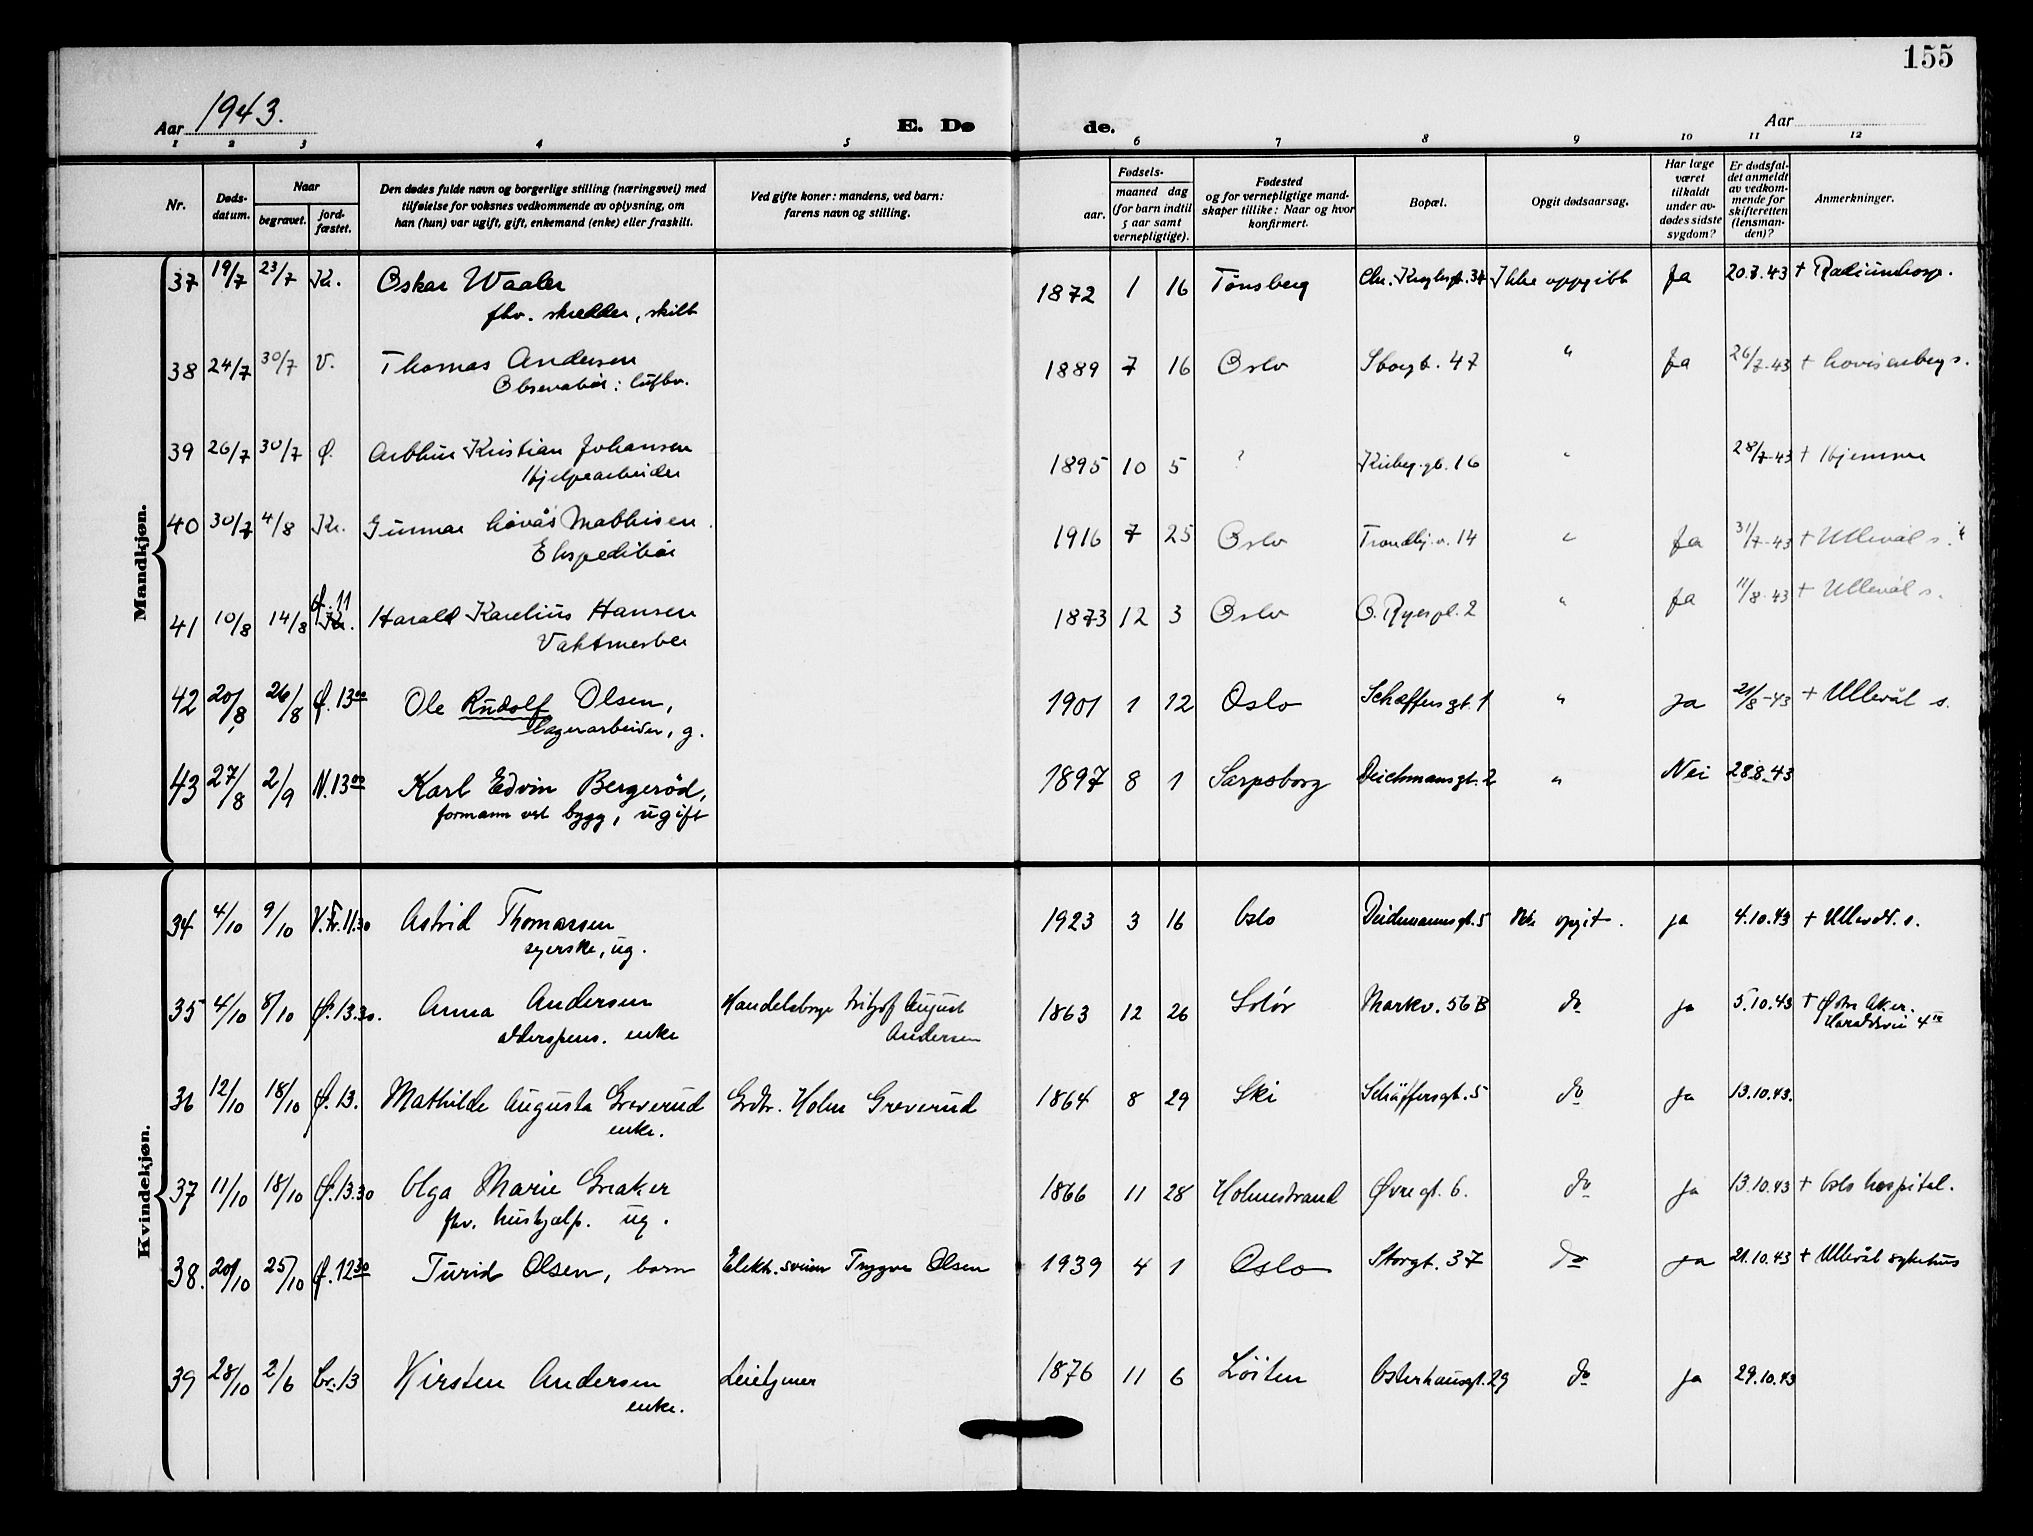 155
Aar 1943.
E. Døde.
Aar
1 2 3 4 5 6 7 8 9 10 11 12
Nr.
Døds-datum.
Naar
begravet.
jord-fæstet.
Den dødes fulde navn og borgerlige stilling (næringsvei) med
tilføielse for voksnes vedkommende av oplysning, om
han (hun) var ugift, gift, enkemand (enke) eller fraskilt.
Ved gifte koner: mandens, ved barn:
farens navn og stilling.
Fødsels-
aar.
maaned dag
(for barn indtil
5 aar samt
vernepligtige).
Fødested
og for vernepligtige mand-
skaper tillike: Naar og hvor
konfirmert.
Bopæl.
Opgit dødsaarsag.
Har læge
været
tilkaldt
under av-
dødes sidste
sygdom?
Er dødsfal-
det anmeldt
av vedkom-
mende for
skifteretten
(lensman-
den)?
Anmerkninger.
Mandkjøn.
37 19/7 23/7 Kr. Oskar Waaler 1872 1 16 Tønsberg Chr. Kroghsgt. 34 Ikke oppgitt Ja 20.7.43 + Radiumhosp.
fhv. skredder, skilt
38 24/7 30/7 V. Thomas Andersen 1889 7 16 Oslo Storgt. 47 " Ja 26/7-43 + Lovisenberg s.
Observatør: luftv.
39 26/7 30/7 Ø. Arthur Kristian Johansen 1895 10 5 ? Kirkeg.gt. 16 " 28/7-43 + Hjemme
Hjelpearbeider
40 30/7 4/8 Kr. Gunnar Løvås Mathisen 1916 7 25 Oslo Trondhj.v. 14 " Ja 31/7-43 + Ullevål s.
Ekspeditør
41 10/8 14/8 Ø. 11 Harald Karelius Hansen 1873 12 3 Oslo O. Ryespl. 2 " Ja 11/8-43 + Ullevål s.
Vaktmester
42 20/8 26/8 Ø. 13⁰⁰ Ole Rudolf Olsen, 1901 1 12 Oslo Schæffersgt. 1 " Ja 21/8-43 + Ullevål s.
lagerarbeider, g.
43 27/8 2/9 N. 13⁰⁰ Karl Edvin Bergerød, 1897 8 1 Sarpsborg Deichmansgt. 2 " Nei 28.8.43
formann ved bygg, ugift
Kvindekjøn.
34 4/10 9/10 V.Kr. 11.30 Astrid Thomassen 1923 3 16 Oslo Deichmannsgt. 5 Ikke opgit. ja 4.10.43 + Ullevål. s.
syerske, ug.
35 4/10 8/10 Ø. 13.30. Anna Andersen Handelsborger Fritjof August 1863 12 26 Solør Markv. 56 B do ja 5.10.43 + Østre Aker.
alderspens. enke Andersen Haraldsvei 4
36 12/10 18/10 Ø. 13. Mathilde Augusta Greverud Grdbr. Holm Greverud 1864 8 29 Ski Schäffersgt. 5 do ja 13.10.43.
enke.
37 11/10 18/10 Ø. 13.30 Olga Marie Greaker 1866 11 28 Holmestrand Øvregt. 6. do ja 13.10.43 + Oslo hospital.
fhv. hushjælp. ug.
38. 20/10 25/10 Ø. 12³⁰ Turid Olsen, barn Elektr. svein Trygve Olsen 1939 4 1 Oslo Storgt. 37 do ja 21.10.43 + Ullevål sykehus
39 28/10 2/6 Cr. 13 Kirsten Andersen Leietjener 1876 11 6 Löiten Osterhausgt. 29 do ja 29.10.43
enke.